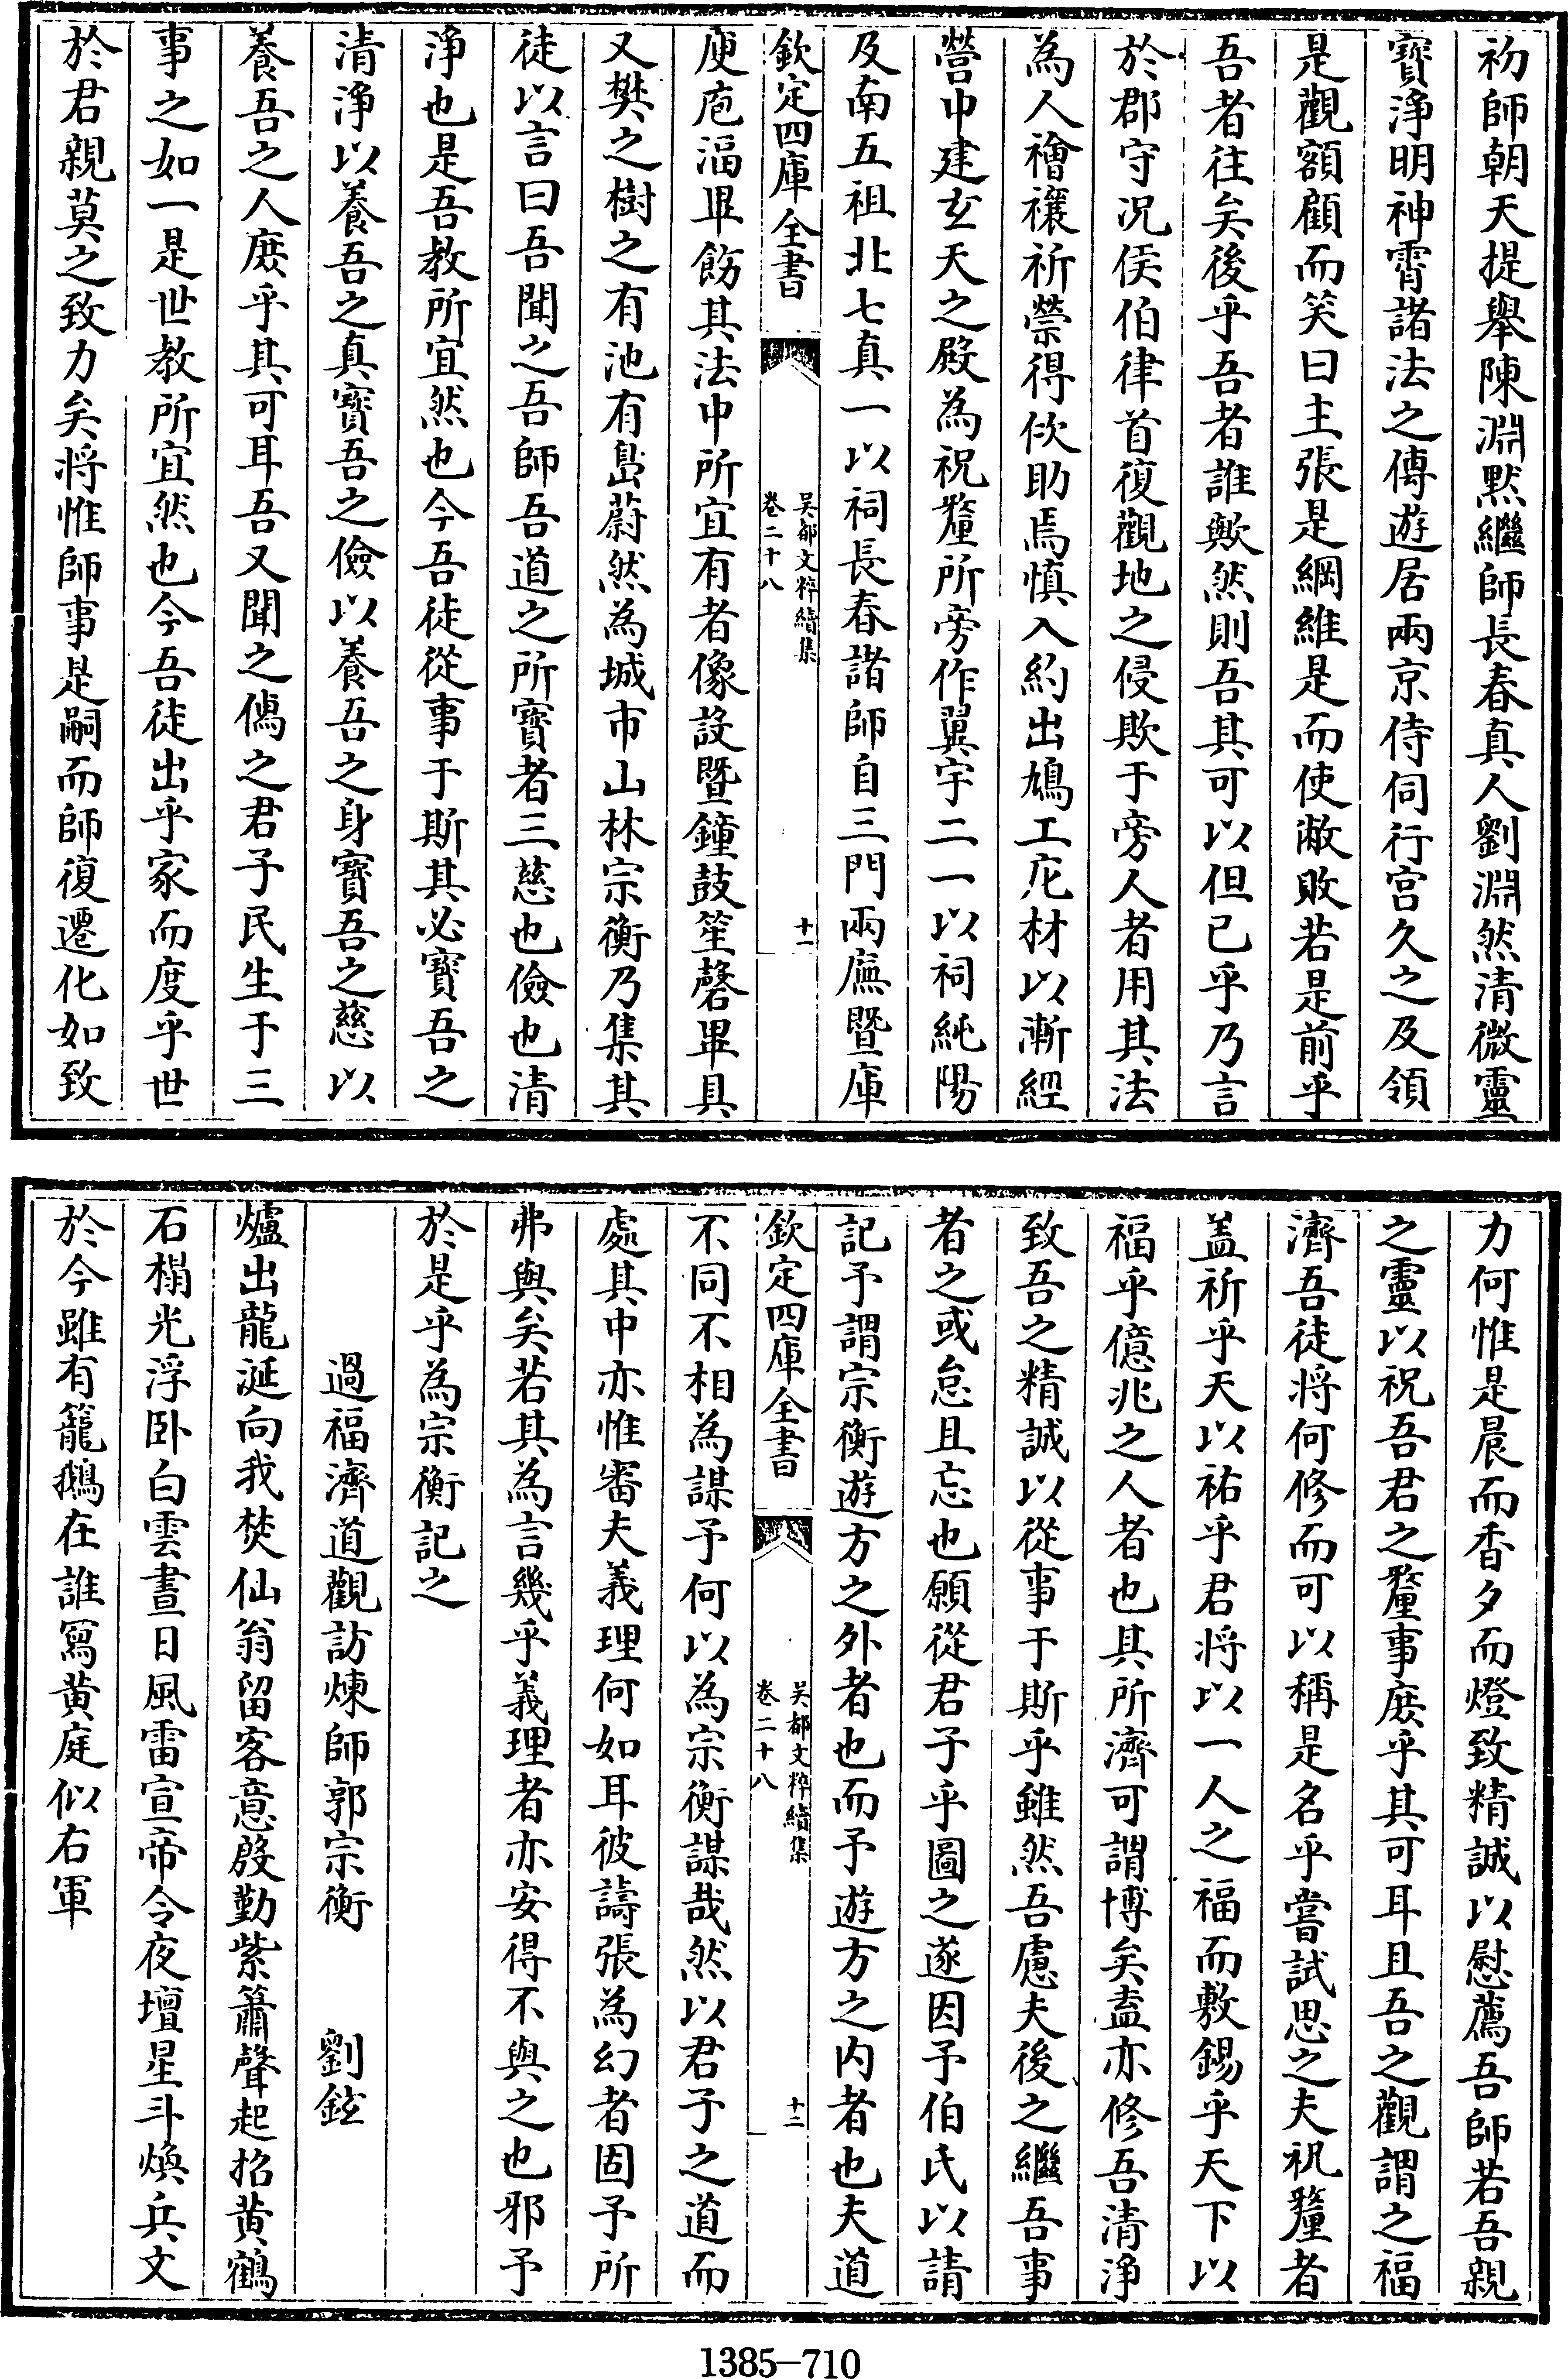 初師朝天提舉陳淵黙繼師長春真人劉淵然清微靈
寳浄明神霄諸法之傳遊居兩京侍伺行宫久之及領
是觀額顧而笑曰主張是綱維是而使敝敗若是前乎
吾者往矣後乎吾者誰歟然則吾其可以但已乎乃言
於郡守况侯伯律首復觀地之侵欺于旁人者用其法
為人禬禳祈禜得佽助焉慎入約出鳩工庀材以漸經
營中建玄天之殿為祝釐所旁作翼宇二一以祠純陽
及南五祖北七真一以祠長春諸師自三門兩廡暨庫
欽定四庫全書
吴都文粹續集
卷二十八
十一
庾庖湢毕飭其法中所宜有者像設暨鐘鼓笙磬畢具
又樊之樹之有池有島蔚然為城市山林宗衡乃集其
徒以言曰吾聞之吾師吾道之所寳者三慈也儉也清
浄也是吾教所宜然也今吾徒從事于斯其必寳吾之
清浄以養吾之真寳吾之儉以養吾之身寳吾之慈以
養吾之人庶乎其可耳吾又聞之儒之君子民生于三
事之如一是世教所宜然也今吾徒出乎家而度乎世
於君親莫之致力矣将惟師事是嗣而師復遷化如致
力何惟是晨而香夕而燈致精誠以慰薦吾師若吾親
之靈以祝吾君之釐事庶乎其可耳且吾之觀謂之福
濟吾徒将何修而可以稱是名乎嘗試思之夫祝釐者
盖祈乎天以祐乎君将以一人之福而敷錫乎天下以
福乎億兆之人者也其所濟可謂博矣盍亦修吾清浄
致吾之精誠以從事于斯乎雖然吾慮夫後之繼吾事
者之或怠且忘也願從君子乎圖之遂因予伯氏以請
記予謂宗衡遊方之外者也而予遊方之内者也夫道
欽定四庫全書
吴都文粹續集
卷二十八
十二
不同不相為謀予何以為宗衡謀哉然以君子之道而
處其中亦惟審夫義理何如耳彼譸張為幻者固予所
弗與矣若其為言幾乎義理者亦安得不與之也邪予
於是乎為宗衡記之
過福濟道觀訪煉師郭宗衡 劉鉉
爐出龍涎向我焚仙翁留客意慇勤紫簫聲起招黄鶴
石榻光浮卧白雲晝日風雷宣帝令夜壇星斗煥兵文
於今雖有籠鵝在誰寫黄庭似右軍
1385-710